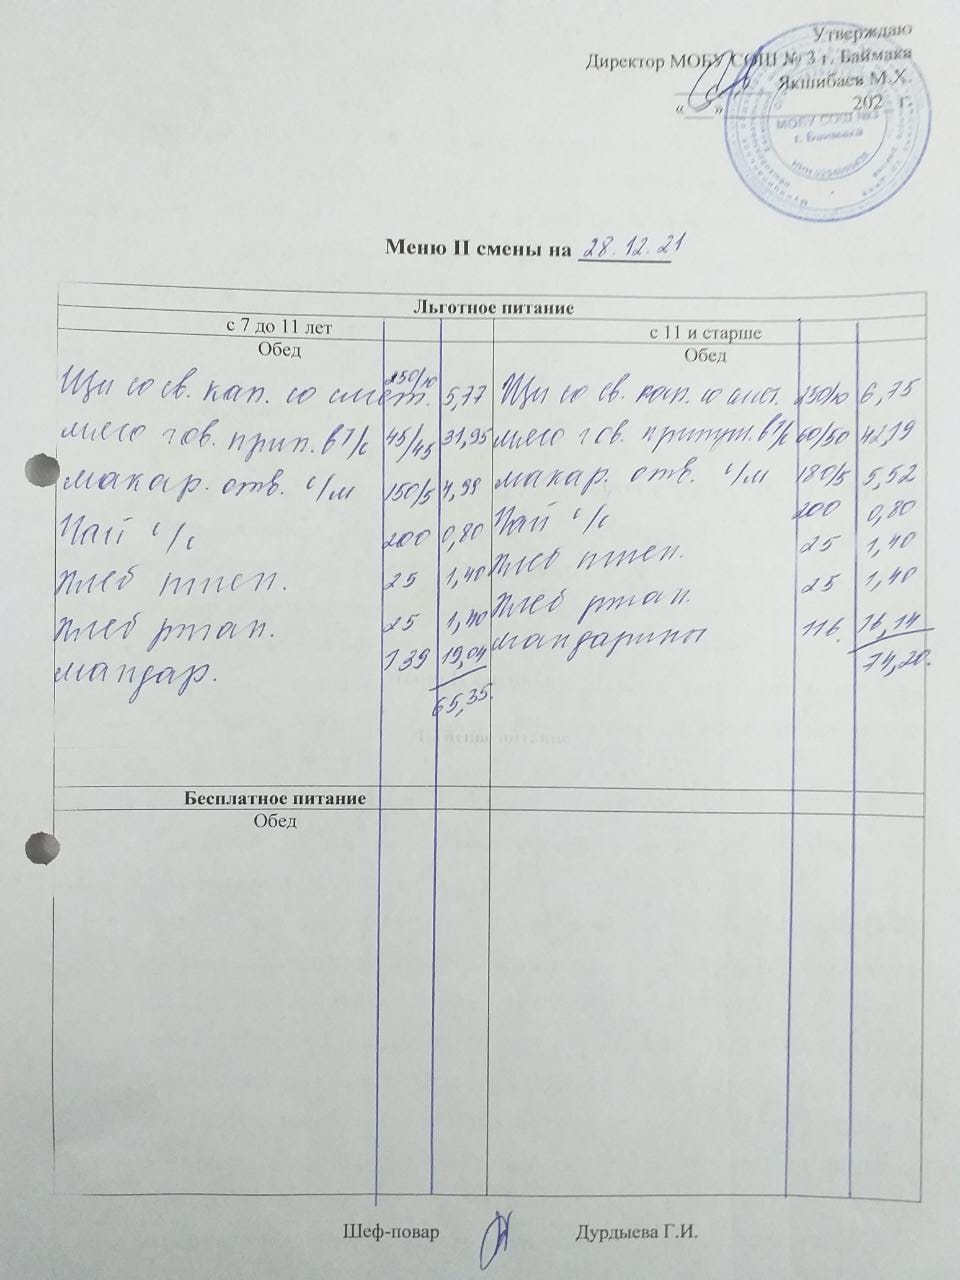 Утверждаю
Директор МОБУ СОШ № 3 г. Баймака
Якшибаев М.Х.
« » 202 г.
МОБУ СОШ №3
г. Баймака
Меню II смены на 28.12.21
Льготное питание
с 7 до 11 лет с 11 и старше
Обед Обед
Щи со св. кап. со смет. 250/10 5,77 Щи со св. кап. со смет. 250/10 6,75
мясо гов. прип. в т/с 45/45 31,95 мясо гов. припущ. в т/с 60/50 42,19
макар. отв. с/м 150/5 4,99 макар. отв. с/м 180/5 5,52
Чай с/с 200 0,80 Чай с/с 200 0,80
Хлеб пшен. 25 1,40 Хлеб пшен. 25 1,40
Хлеб ржан. 25 1,40 Хлеб ржан. 25 1,40
мандар. 139 19,04 мандарины 116 16,14
65,35. 74,20.
Бесплатное питание
Обед
Шеф-повар Дурдыева Г.И.